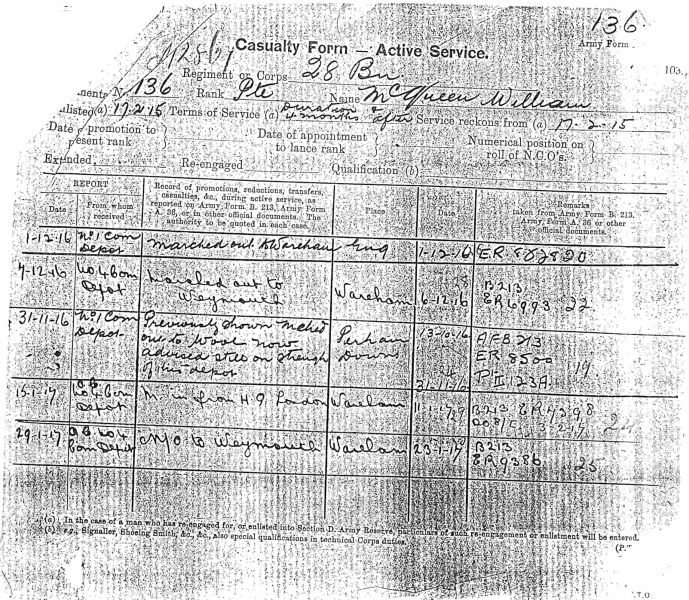 136
Casualty Form — Active Service.
Army Form
103.
Regiment or Corps 28 Bn
136 Rank Pte Name McQueen William
nlisted (a) 17.2.15 Terms of Service (a) Duration & 4 months after Service reckons from (a) 17-2-15
Date of promotion to
esent rank
Date of appointment
to lance rank
Numerical position on
roll of N.C.O's.
Extended
Re-engaged
Qualification (b)
REPORT
Date
From whom
received
Record of promotions, reductions, transfers,
casualties, &c., during active service, as
reported on Army Form B. 213, Army Form
A. 36, or in other official documents. The
authority to be quoted in each case.
Place
Date
Remarks
taken from Army Form B. 213,
Army Form A. 36 or other
official documents.
1-12-16 No 1 Com Depot marched out to Wareham Eng 1-12-16 ER 8
7-12-16 No. 4 Com Depot marched out to Weymouth Wareham 6-12-16 B213 ER 6993 22
31-11-16 No 1 Com Depot Previously shown mched
out to Wool now
advised still on strength
of this depot
Perham Downs
13-10-16
AFB 213
ER 8500
Pt II 123A 19
15-1-17 No 4 Com Depot in from H Q London Wareham B213
29-1-17 No 4 Com Depot M/O to Weymouth Wareham 23-1-17 B213 ER 9386 25
(a) In the case of a man who has re-engaged for, or enlisted into Section D. Army Reserve, particulars of such re-engagement or enlistment will be entered.
(b) e.g., Signaller, Shoeing Smith, &c., &c., also special qualifications in technical Corps duties.
(P.
T.O.